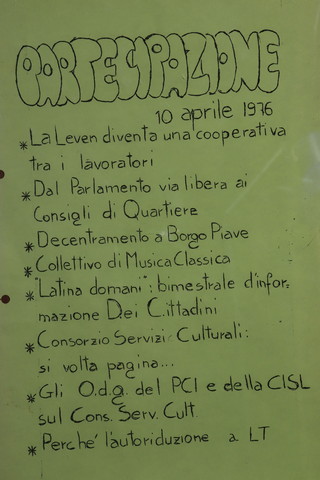 PARTECIPAZIONE
10 aprile 1976
* La Leven diventa una cooperativa
tra i lavoratori
* Dal Parlamento via libera ai
Consigli di Quartiere
* Decentramento a Borgo Piave
* Collettivo di Musica Classica
* "Latina domani": bimestrale d'infor-
mazione Dei Cittadini
* Consorzio Servizi Culturali:
si volta pagina...
* Gli O.d.g. del PCI e della CISL
sul Cons. Serv. Cult.
* Perche' l'autoriduzione a LT